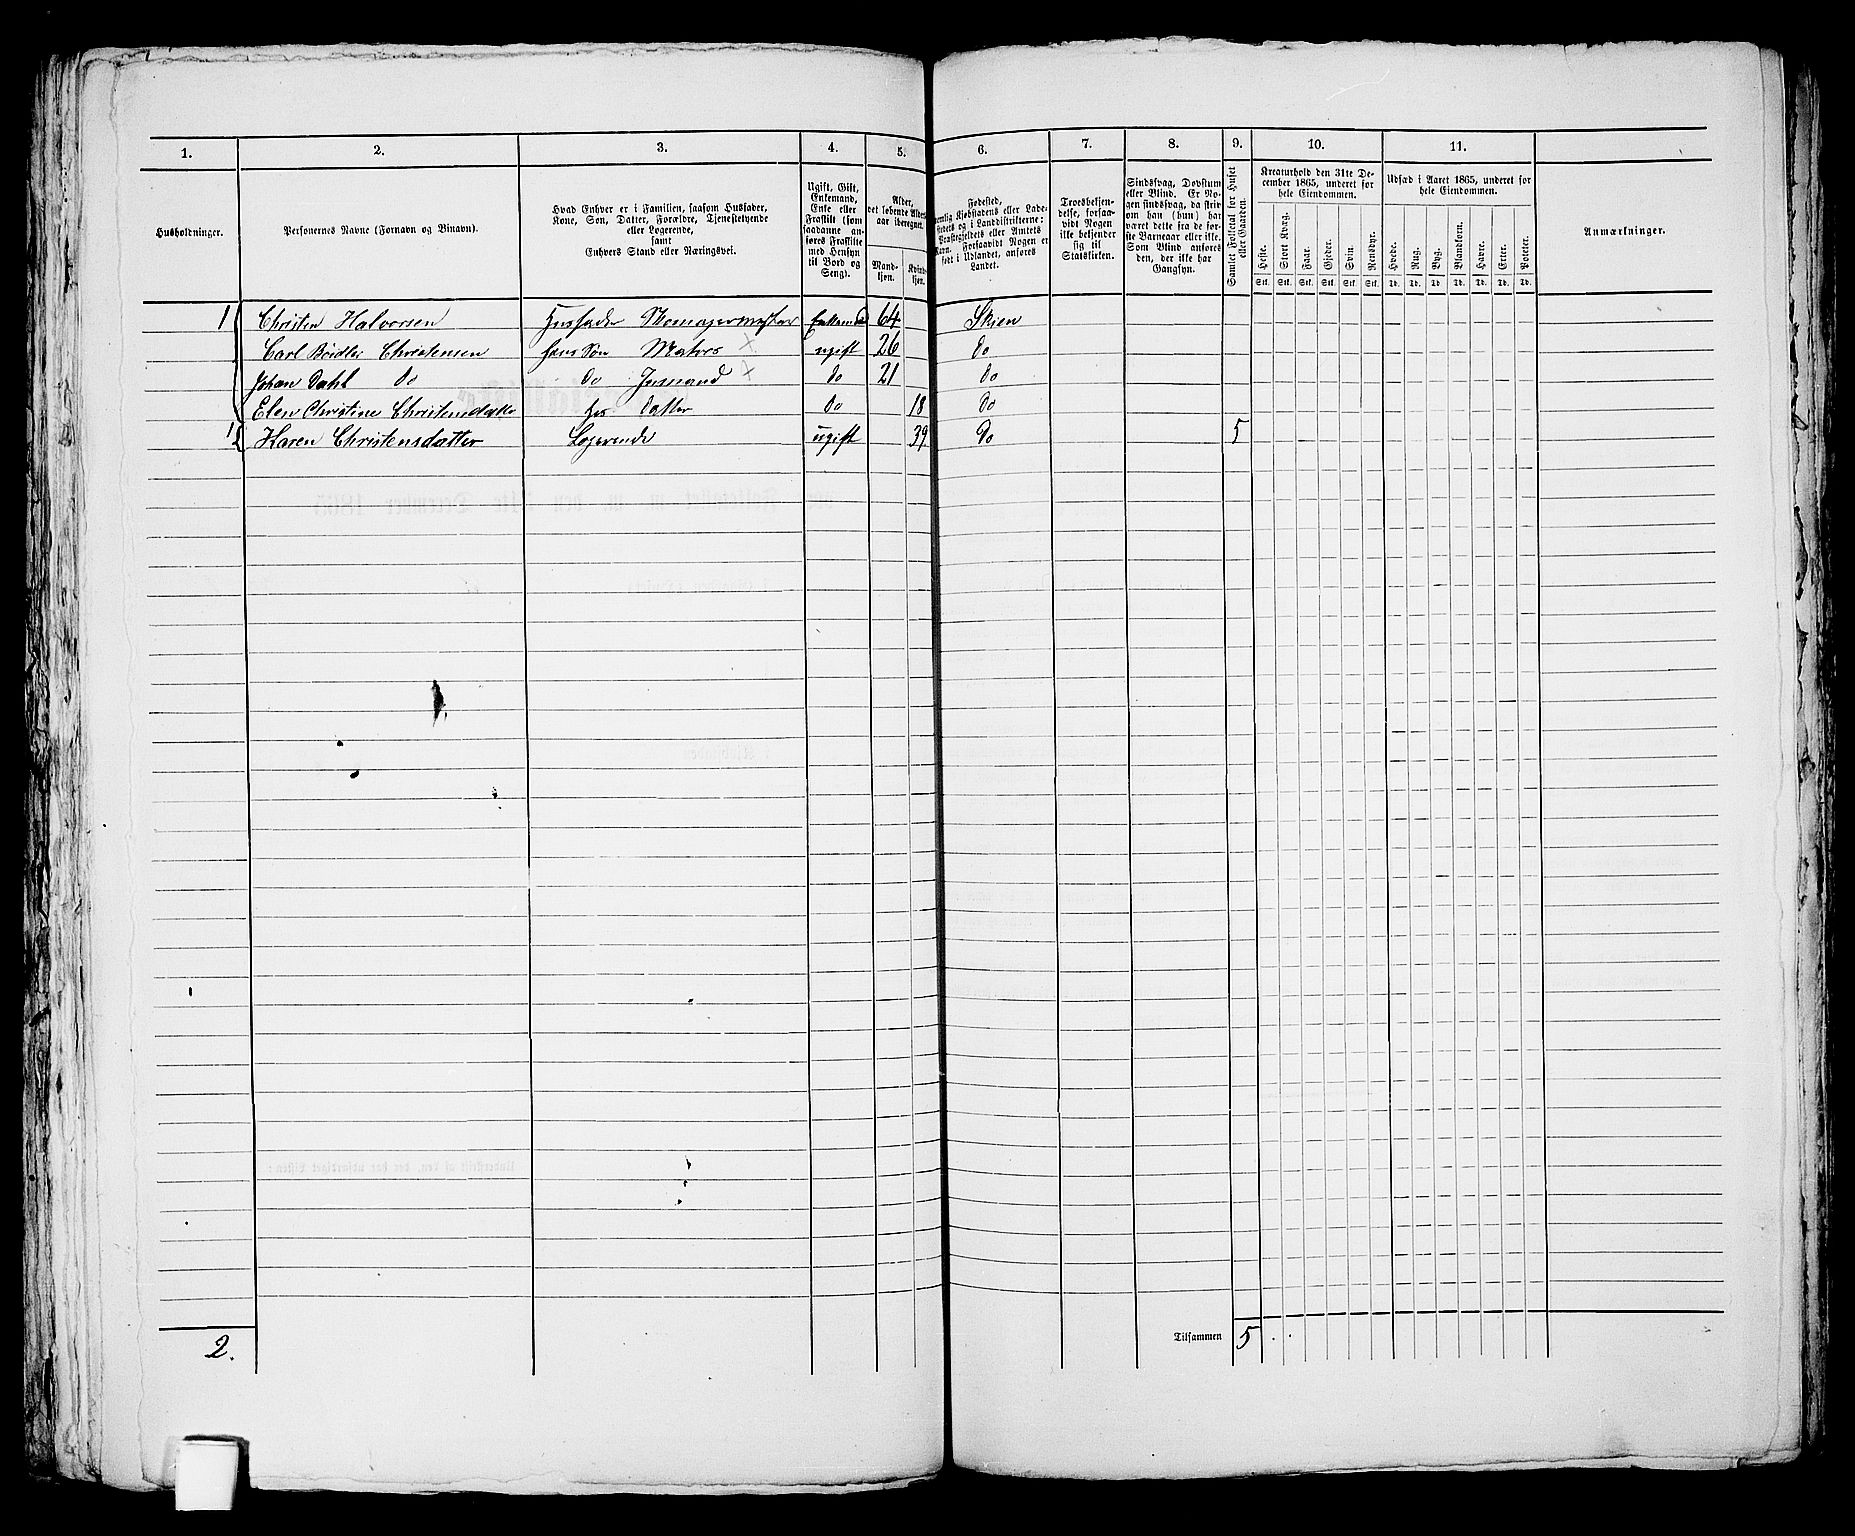 1. 2. 3. 4. 5. 6. 7. 8. 9. 10. 11.
Husholdninger.
Personernes Navne (Fornavn og Binavn).
Hvad Enhver er i Familien, saasom Husfader,
Kone, Søn, Datter, Forældre, Tjenestetyende
eller Logerende,
samt
Enhvers Stand eller Næringsvei.
Ugift, Gift,
Enkemand,
Enke eller
Fraskilt (som
saadanne an-
føres Fraskilte
med Hensyn
til Bord og
Seng).
Alder,
det løbende Alders-
aar iberegnet.
Mand-
kjøn.
Kvind-
kjøn.
Fødested,
nemlig Kjøbstadens eller Lade-
stedets og i Landdistrikterne:
Præstegjeldets eller Amtets
Navn. Forsaavidt Nogen er
født i Udlandet, anføres
Landet.
Troesbekjen-
delse, forsaa-
vidt Nogen
ikke bekjender
sig til
Statskirken.
Sindssvag, Døvstum
eller Blind. Er No-
gen sindssvag, da skriv
om han (hun) har
været dette fra de før-
ste Barneaar eller ikke.
Som Blind anføres
den, der ikke har
Gangsyn.
Samlet Folketal for Huset
eller Gaarden.
Kreaturhold den 31te De-
cember 1865, underet for
hele Eiendommen.
Heste. Stort Kvæg. Faar. Gjeder. Svin. Rensdyr.
Stk. Stk. Stk. Stk. Stk. Stk.
Udsæd i Aaret 1865, underet for
hele Eiendommen.
Hvede. Rug. Byg. Blandkorn. Havre. Erter. Poteter.
Td. Td. Td. Td. Td. Td. Td.
Anmærkninger.
1 Christen Halvorsen Husfader Skomagermester Enkemand 64 Skien
Carl Christensen hans Søn ugift 26 do
Johan Dahl do do 21 do
Elen Christine Christensdatter hs datter do 18 do
1 Karen Christensdatter Logerende ugift 39 do 5
2.
Tilsammen 5